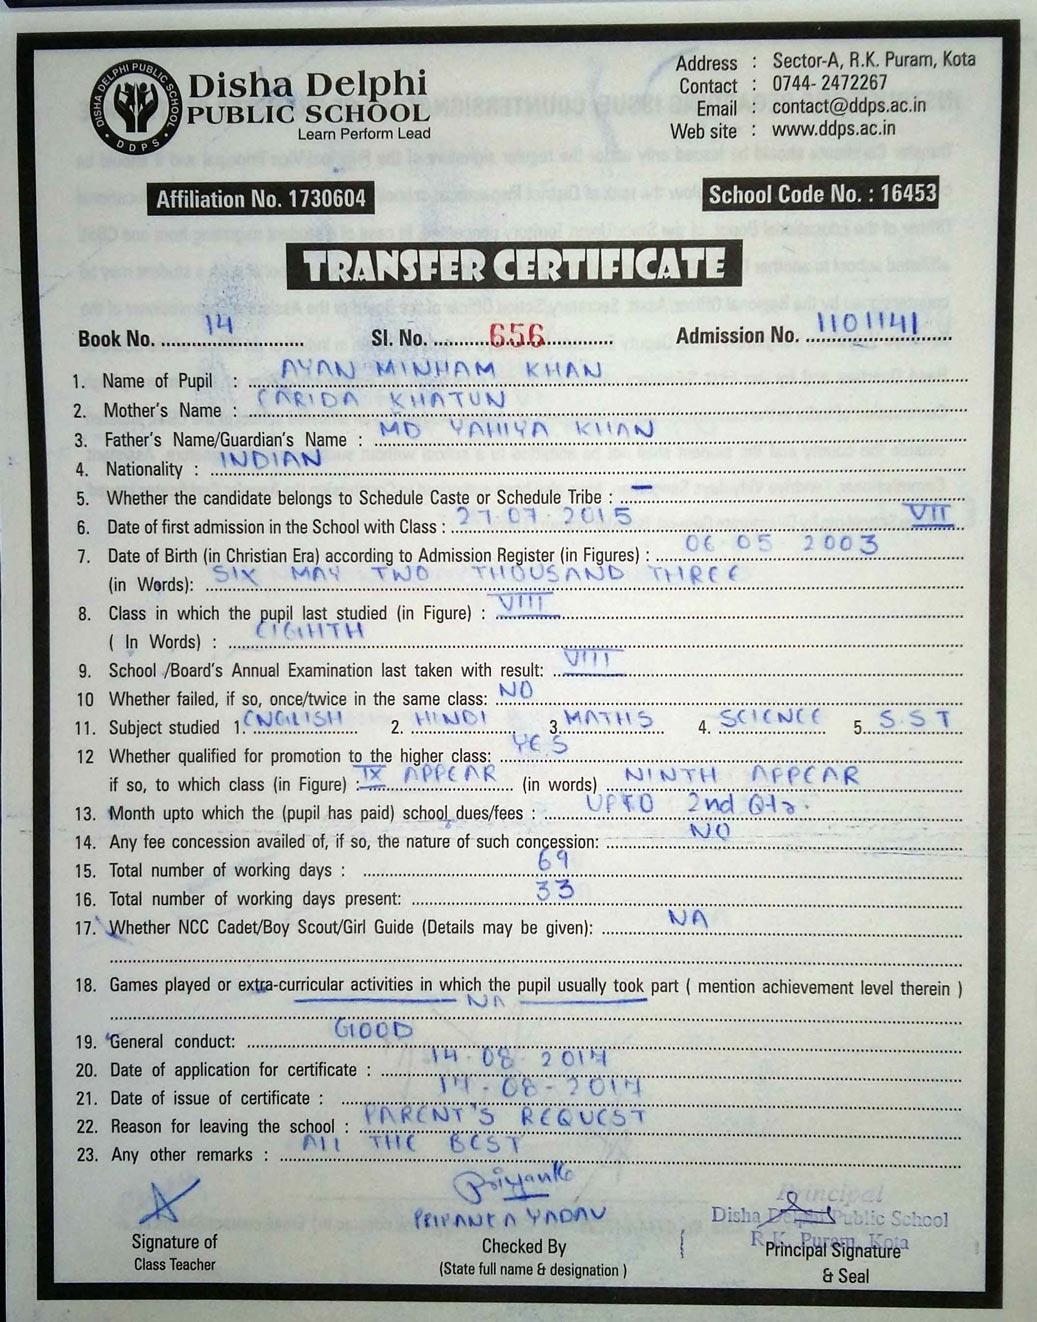 DISHA DELPHI PUBLIC SCHOOL
DDPS
Disha Delphi
PUBLIC SCHOOL
Learn Perform Lead
Address : Sector-A, R.K. Puram, Kota
Contact : 0744- 2472267
Email : contact@ddps.ac.in
Web site : www.ddps.ac.in
Affiliation No. 1730604
School Code No. : 16453
TRANSFER CERTIFICATE
Book No. 14 Sl. No. 656 Admission No. 1101141
1. Name of Pupil : AYAN MINHAM KHAN
2. Mother's Name : CARIDA KHATUN
3. Father's Name/Guardian's Name : MD YAHIYA KHAN
4. Nationality : INDIAN
5. Whether the candidate belongs to Schedule Caste or Schedule Tribe : —
6. Date of first admission in the School with Class : 27.07.2015 VII
7. Date of Birth (in Christian Era) according to Admission Register (in Figures) : 06 05 2003
(in Words): SIX MAY TWO THOUSAND THREE
8. Class in which the pupil last studied (in Figure) : VIII
( In Words) : EIGHTH
9. School /Board's Annual Examination last taken with result: VIII
10 Whether failed, if so, once/twice in the same class: NO
11. Subject studied 1. ENGLISH 2. HINDI 3. MATHS 4. SCIENCE 5. S.S.T
12 Whether qualified for promotion to the higher class: YES
if so, to which class (in Figure) : IX APPEAR (in words) NINTH APPEAR
13. Month upto which the (pupil has paid) school dues/fees : UPTO 2nd Qtr.
14. Any fee concession availed of, if so, the nature of such concession: NO
15. Total number of working days : 69
16. Total number of working days present: 33
17. Whether NCC Cadet/Boy Scout/Girl Guide (Details may be given): NA
18. Games played or extra-curricular activities in which the pupil usually took part ( mention achievement level therein )
NA
19. General conduct: GOOD
20. Date of application for certificate : 14-08-2017
21. Date of issue of certificate : 17-08-2017
22. Reason for leaving the school : PARENT'S REQUEST
23. Any other remarks : ALL THE BEST
Priyanka
PRIYANKA YADAV
Principal
Disha Delphi Public School
R.K. Puram, Kota
Signature of
Class Teacher
Checked By
(State full name & designation )
Principal Signature
& Seal